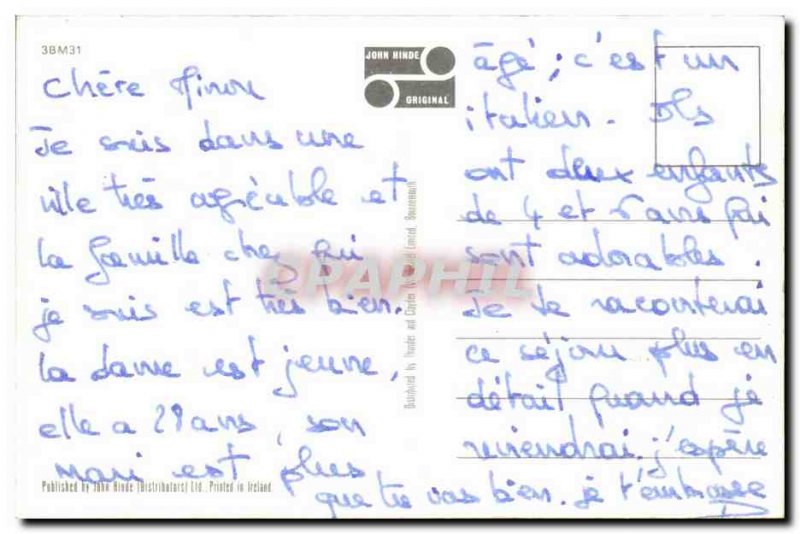 3BM31
JOHN HINDE
ORIGINAL
Chère Minou
Je suis dans une
ville très agréable et
la famille chez qui
je suis est très bien.
la dame est jeune,
elle a 28 ans, son
mari est plus
âgé ; c'est un
italien. Ils
ont deux enfants
de 4 et 6 ans qui
sont adorables.
Je te raconterai
ce séjour plus en
détail quand je
reviendrai. j'espère
que tu vas bien. je t'embrasse
Published by John Hinde (Distributors) Ltd. Printed in Ireland.
Distributed by Limited, Bournemouth
CPAPHIL